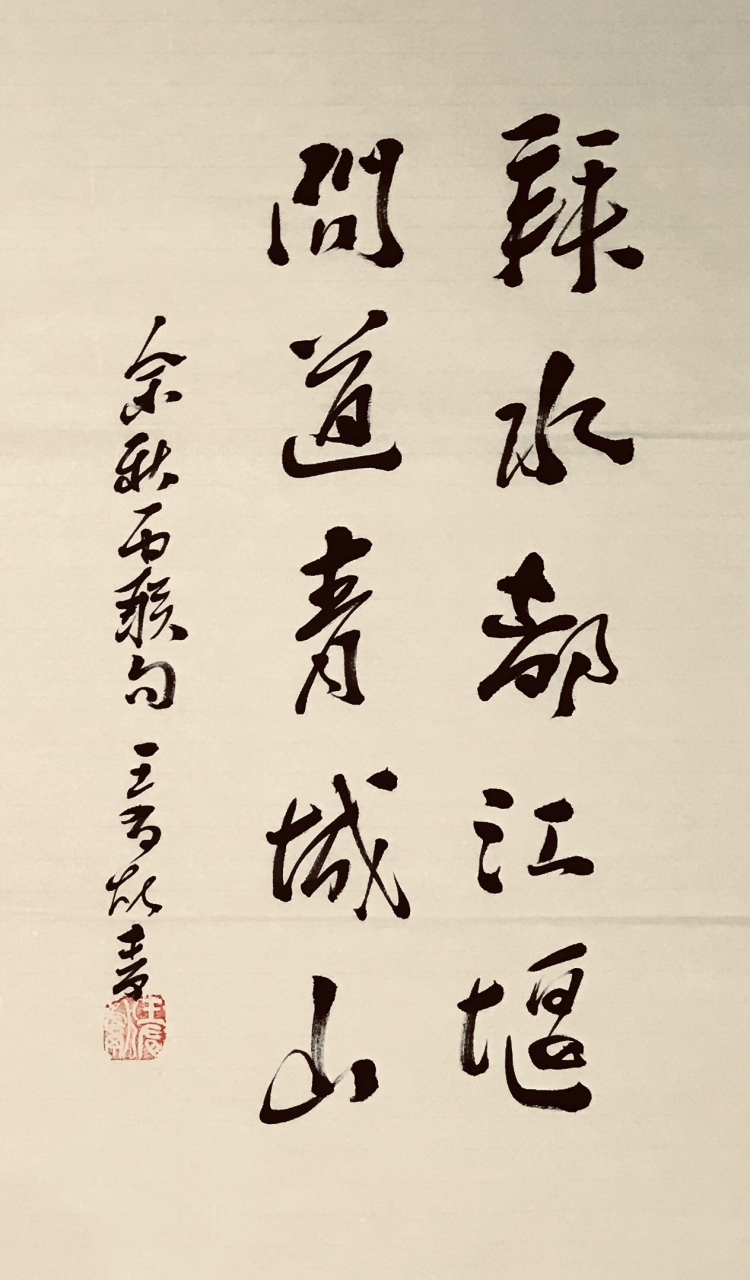 拜水都江堰
問道青城山
余秋雨聯句 王 書